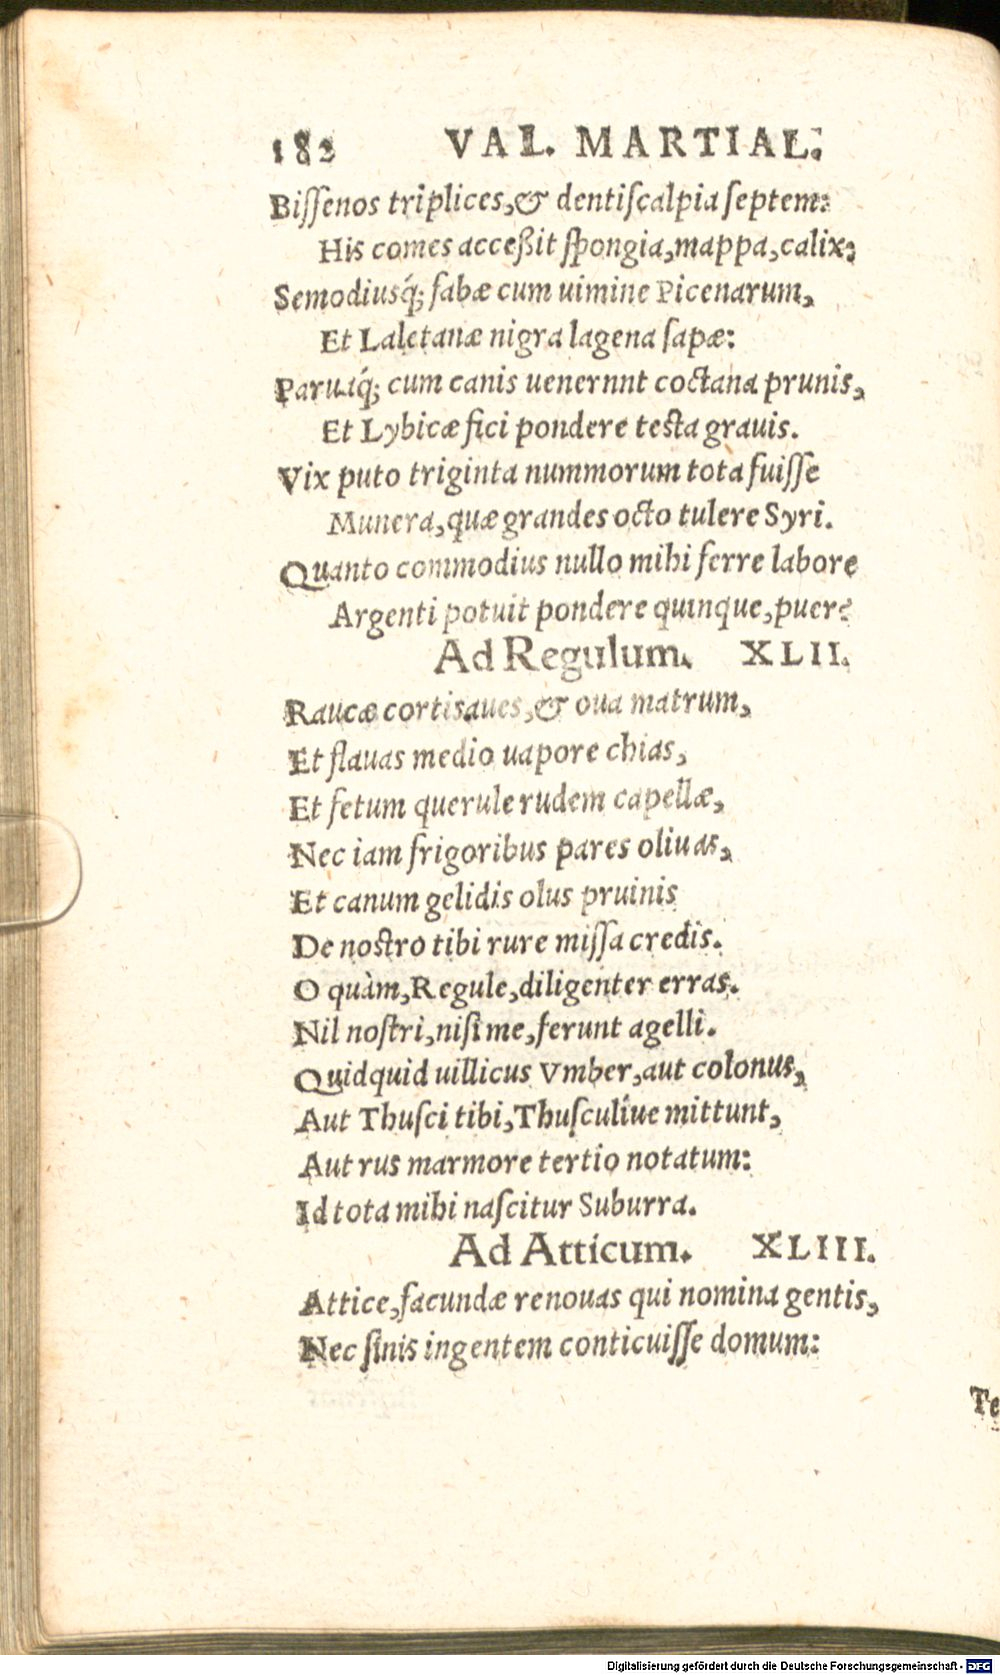 182 VAL. MARTIAL.
Biſſenos triplices,& dentiſcalpia ſeptem:
His comes acceßit ſpongia,mappa,calix:
Semodiusq́; fabæ cum uimine Picenarum,
Et Laletanæ nigra lagena ſapæ:
Paruaq́; cum canis uenernnt coctana prunis,
Et Lybicæ fici pondere teſta grauis.
Vix puto triginta nummorum tota fuiſſe
Munera,quæ grandes octo tulere Syri.
Quanto commodius nullo mihi ferre labore
Argenti potuit pondere quinque,puer?
Ad Regulum. XLII.
Raucæ cortis aues,& oua matrum,
Et flauas medio uapore chias,
Et fetum querule rudem capellæ,
Nec iam frigoribus pares oliuas,
Et canum gelidis olus pruinis
De noſtro tibi rure miſſa credis.
O quàm,Regule,diligenter erras.
Nil noſtri,niſi me,ferunt agelli.
Quidquid uillicus Vmber,aut colonus,
Aut Thuſci tibi,Thuſculíue mittunt,
Aut rus marmore tertio notatum:
Id tota mihi naſcitur Suburra.
Ad Atticum. XLIII.
Attice,facundæ renouas qui nomina gentis,
Nec ſinis ingentem conticuiſſe domum:
Te
Digitalisierung gefördert durch die Deutsche Forschungsgemeinschaft - DFG